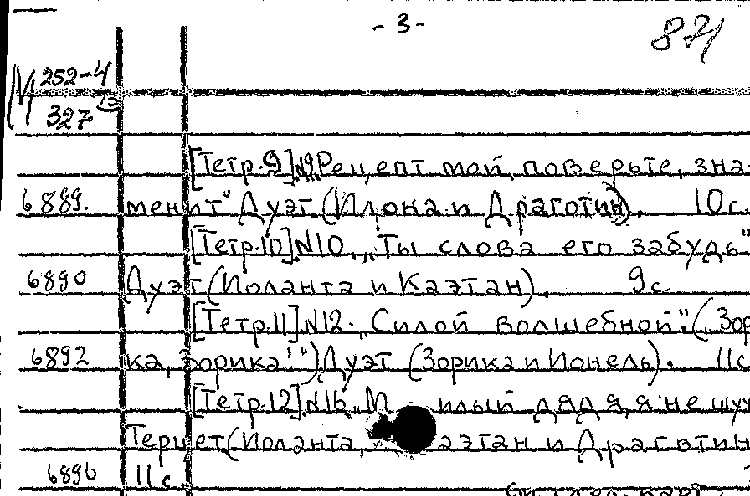 - 3 -
871
М 252-4
327
[Тетр.9] №9 „Рецепт мой, поверьте, зна-
6889. менит" Дуэт (Илона и Драготин). 10 с.
[Тетр.10] №10. „Ты слова его забудь"
6890 Дуэт (Иоланта и Каэтан). 9 с
[Тетр.11] №12. „Силой волшебной". (Зор
6892 ка, Зорика!") Дуэт (Зорика и Ионель). 11с
[Тетр.12] №16. М илый дядя, я не шу
Терцет (Иоланта, Каэтан и Драготин
6896 11 с.